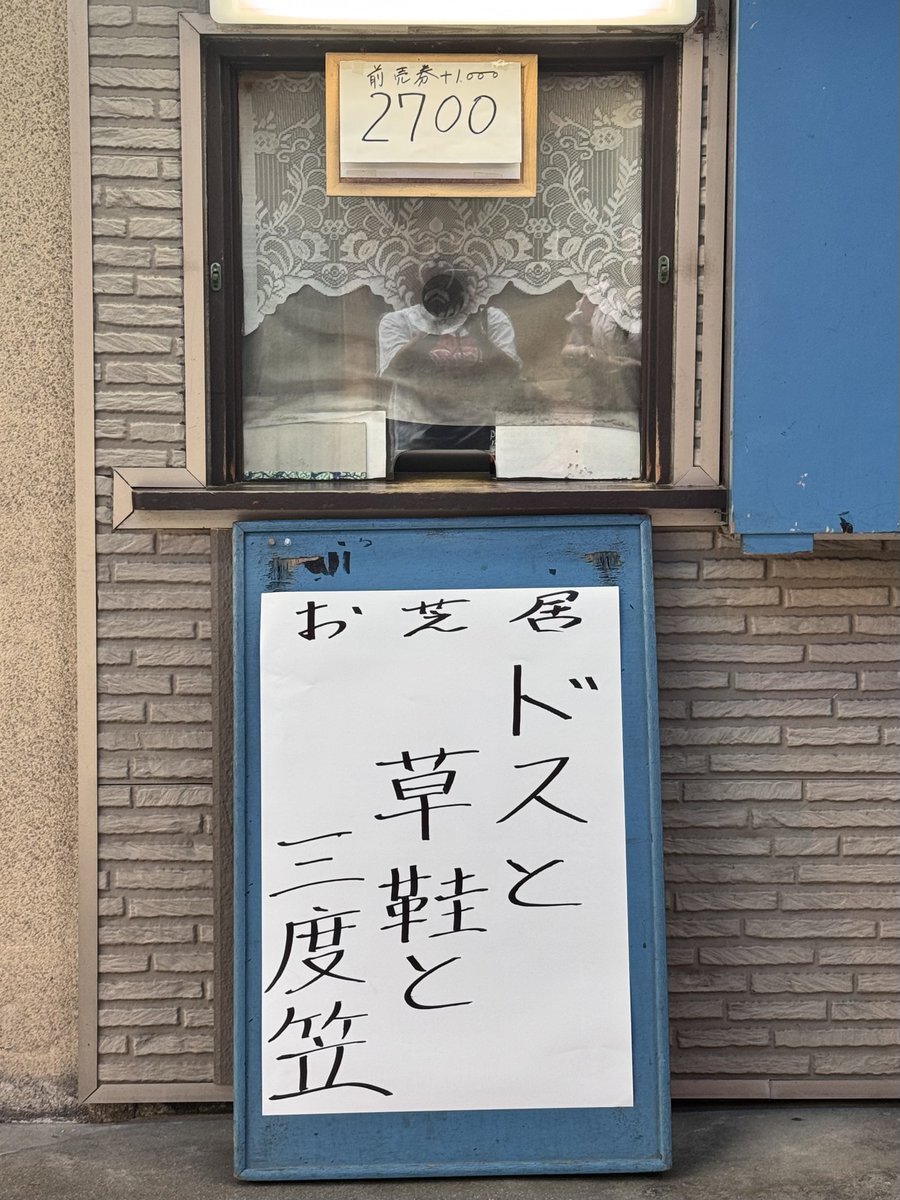 前売券+1.000
2700
お芝居
ドスと
草鞋と
三度笠